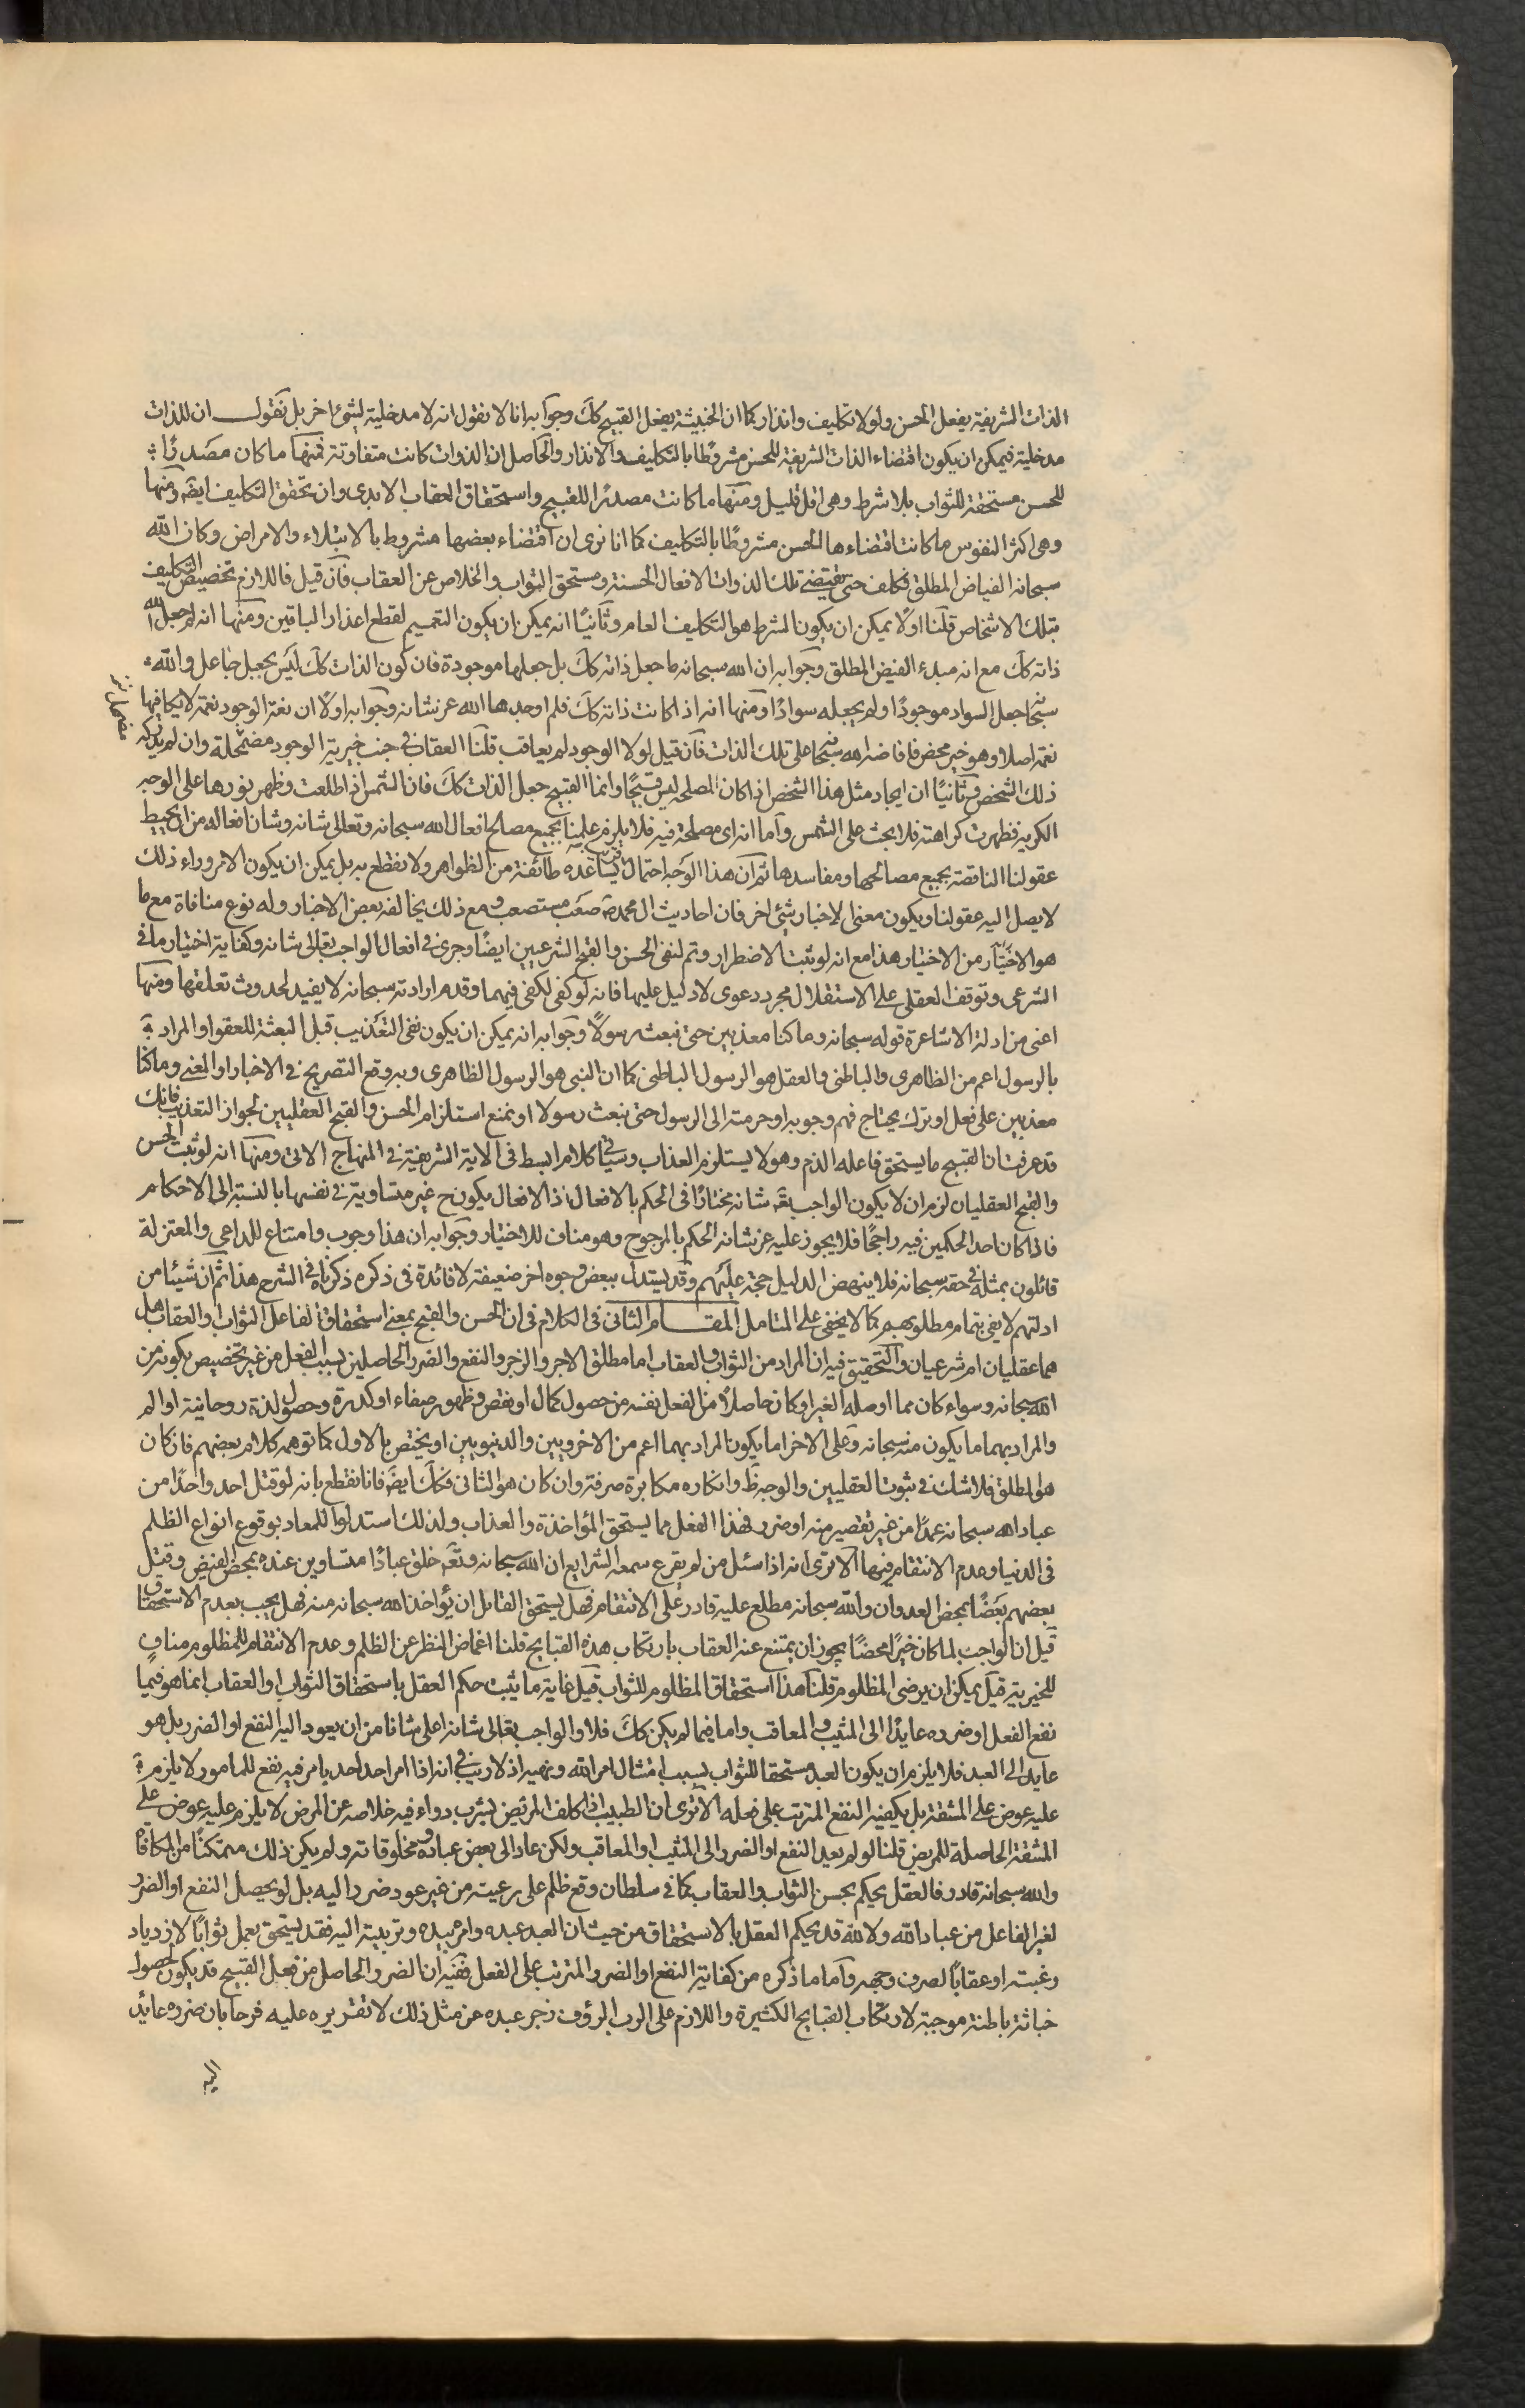 الذات الشريفة يفعل الحسن ولو لا تكليف وانذار كما ان الخبيثة يفعل القبيح كك وجوابه انا لا نقول انه لا مدخلية لشئ اخر بل نقول ان للذات
مدخلية فيمكن ان يكون اقتضاء الذات الشريفة للحسن مشروطا بالتكليف والانذار والحاصل ان الذوات كانت متفاوتة فمنها ما كان مصدرا
للحسن مستحقة للثواب بلا شرط وهى اقل قليل ومنها ما كانت مصدرا للقبيح واستحقاق العقاب الابدى وان تحقق التكليف ايضا ومنها
وهى اكثر النفوس ما كانت اقتضاءها للحسن مشروطا بالتكليف كما انا نرى ان اقتضاء بعضها مشروط بالابتلاء والامراض وكان الله
سبحانه الفياض المطلق فكلف حتى يقتضى تلك الذوات الافعال الحسنة ومستحق الثواب والخلاص عن العقاب فان قيل فاللازم تخصيص التكليف
بتلك الاشخاص قلنا اولا يمكن ان يكون الشرط هو التكليف العام وثانيا انه يمكن ان يكون التعميم لقطع اعذار الباقين ومنها انه لم جعل الله
ذاته كك مع انه مبدء الفيض المطلق وجوابه ان الله سبحانه ما جعل ذاته كك بل جعلها موجودة فان كون الذات كك ليس بجعل جاعل والله
سبحا جعل السواد موجودا ولم يجعله سوادا ومنها انه اذا كانت ذاته كك فلم اوجدها الله عز شانه وجوابه اولا ان نعمة الوجود نعمة لا يكافيها
نعمة اصلا وهو خير محض فافاضه الله سبحا على تلك الذات فان قيل لولا الوجود لم يعاقب قلنا العقاب فى جنب خيرية الوجود مضمحلة وان لم يدركه
ذلك الشخص وثانيا ان ايجاد مثل هذا الشخص اذا كان لمصلحه ليس قبيحا وانما القبيح جعل الذات كك فان الشمس اذا طلعت وظهر نورها على الوجه
الكريه فظهرت كراهته فلا بحث على الشمس واما انه اى مصلحة فيه فلا يلزم علينا بجميع مصالح افعال الله سبحانه وتعالى شانه وشان افعاله من ان يحيط
عقولنا الناقصة بجميع مصالحها ومفاسدها ثم ان هذا الوجه احتمال يساعده طائفة من الظواهر ولا نقطع به بل يمكن ان يكون الامر وراء ذلك
لا يصل اليه عقولنا ويكون معنى الاخبار شئ اخر فان احاديث ال محمد ص صعب مستصعب ومع ذلك يخالفه بعض الاخبار وله نوع منافاة مع ما
هو الاختيار من الاختيار هذا مع انه لو ثبت الاضطرار وتم لنفى الحسن والقبح الشرعيين ايضا وجرى فى افعال الواجب تعالى شانه وكفاية اختيار ما فى
الشرعى وتوقف العقلى على الاستقلال مجرد دعوى لا دليل عليها فانه لو كفى لكفى فيهما وقدم ارادته سبحانه لا يفيد لحدوث تعلقها ومنها
اعنى من ادلة الاشاعرة قوله سبحانه وما كنا معذبين حتى نبعث رسولا وجوابه انه يمكن ان يكون نفى التعذيب قبل البعثة للعفو او المراد
بالرسول اعم من الظاهرى والباطنى والعقل هو الرسول الباطنى كما ان النبى هو الرسول الظاهرى وبه وقع التصريح فى الاخبار او المعنى وما كنا
معذبين على فعل او ترك يحتاج فهم وجوبه او حرمته الى الرسول حتى نبعث رسولا او نمنع استلزام الحسن والقبح العقليين لجواز التعذيب فانك
قد عرفت ان القبيح ما يستحق فاعله الذم وهو لا يستلزم العذاب وسياتى كلام ابسط فى الاية الشريفة فى المنهاج الاتى ومنها انه لو ثبت الحسن
والقبح العقليان لزم ان لا يكون الواجب تعه شانه مختارا فى الحكم بالافعال اذ الافعال يكون ح غير متساوية فى نفسها بالنسبة الى الاحكام
فاذا كان احد الحكمين فيه راجحا فلا يجوز عليه عز شانه الحكم بالمرجوح وهو مناف للاختيار وجوابه ان هذا وجوب وامتناع للداعى والمعتزلة
قائلون بمثله فى حقه سبحانه فلا ينهض الدليل حجة عليهم وقد يستدل ببعض وجوه اخر ضعيفة لا فائدة فى ذكره ذكرناه فى الشرح هذا ثم ان شيئا من
ادلتهم لا يفى بتمام مطلوبهم كما لا يخفى على المتامل المقام الثانى فى الكلام فى ان الحسن والقبح بمعنى استحقاق الفاعل الثواب والعقاب هل
هما عقليان ام شرعيان والتحقيق فيه ان المراد من الثواب والعقاب اما مطلق الاجر والزجر والنفع والضرر الحاصلين بسبب الفعل من غير تخصيص بكونه من
الله سبحانه وسواء كان مما اوصله الغير او كان حاصلا من الفعل نفسه من حصول كمال او نقص وظهور صفاء او كدرة وحصول لذة روحانية او الم
والمراد بهما ما يكون منه سبحانه وعلى الاخر اما يكون المراد بهما اعم من الاخرويين والدنيويين او يختص بالاول كما توهمه كلام بعضهم فان كان
هو المطلق فلا شك فى ثبوت العقليين والوجه ظ وانكاره مكابرة صرفة وان كان هو الثانى فكك ايضا فانا نقطع بانه لو قتل احد واحدا من
عباد الله سبحانه عمدا من غير تقصير منه او ضرر فهذا الفعل مما يستحق المؤاخذة والعذاب ولذلك استدلوا للمعاد بوقوع انواع الظلم
فى الدنيا وعدم الانتقام فيها الا ترى انه اذا سئل من لم يقرع سمعه الشرايع ان الله سبحانه وتعه خلق عبادا متساوين عنده بمحض الفيض وقتل
بعضهم بعضا بمحض العدوان والله سبحانه مطلع عليه قادر على الانتقام فهل يستحق القاتل ان يؤاخذ الله سبحانه منه فهل يجيب بعدم الاستحقاق
قيل ان الواجب لما كان خيرا محضا يجوز ان يمتنع عنه العقاب بارتكاب هذه القبايح قلنا اغماض النظر عن الظلم وعدم الانتقام للمظلوم مناف
للخيرية قيل يمكن ان يرضى المظلوم قلنا هذا استحقاق المظلوم للثواب قيل غاية ما يثبت حكم العقل باستحقاق الثواب او العقاب انما هو فيما
نفع الفعل او ضرره عايدا الى المثيب والمعاقب واما فيما لم يكن كك فلا والواجب تعالى شانه اعلى شانا من ان يعود اليه النفع او الضرر بل هو
عايد الى العبد فلا يلزم ان يكون العبد مستحقا للثواب بسبب امتثال امر الله ونهيه اذ لا ريب فى انه اذا امر احد لاحد بامر فيه نفع للمامور لا يلزم
عليه عوض على المشقة بل يكفيه النفع المترتب على فعله الا ترى ان الطبيب اذا كلف المريض بشرب دواء فيه خلاصه عن المرض لا يلزم عليه عوض على
المشقة الحاصلة للمريض قلنا لو لم يعد النفع او الضرر الى المثيب او المعاقب ولكن عاد الى بعض عباده ومخلوقاته ولم يكن ذلك متمكنا من المكافاة
والله سبحانه قادر فالعقل يحكم بحسن الثواب والعقاب كما فى سلطان وقع ظلم على رعيته من غير عود ضرر اليه بل لو يحصل النفع او الضرر
لغير الفاعل من عباد الله ولا لله قد يحكم العقل بالاستحقاق من حيث ان العبد عبده وامره بيده وتربيته اليه فقد يستحق بعمل ثوابا لازدياد
رغبته او عقابا لصرف وجهه واما ما ذكره من كفاية النفع او الضرر المترتب على الفعل ففيه ان الضرر الحاصل من فعل القبيح قد يكون لحصول
خباثة باطنة موجبة لارتكاب القبايح الكثيرة واللازم على الرب الرؤف زجر عبده عن مثل ذلك لا تقريره عليه فرحا بان ضرره عائد
اليه